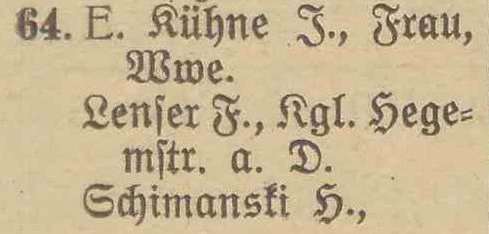 64. E. Kühne J., Frau,
Wwe.
Lenſer F., Kgl. Hege⸗
mſtr. a. D.
Schimanski H.,